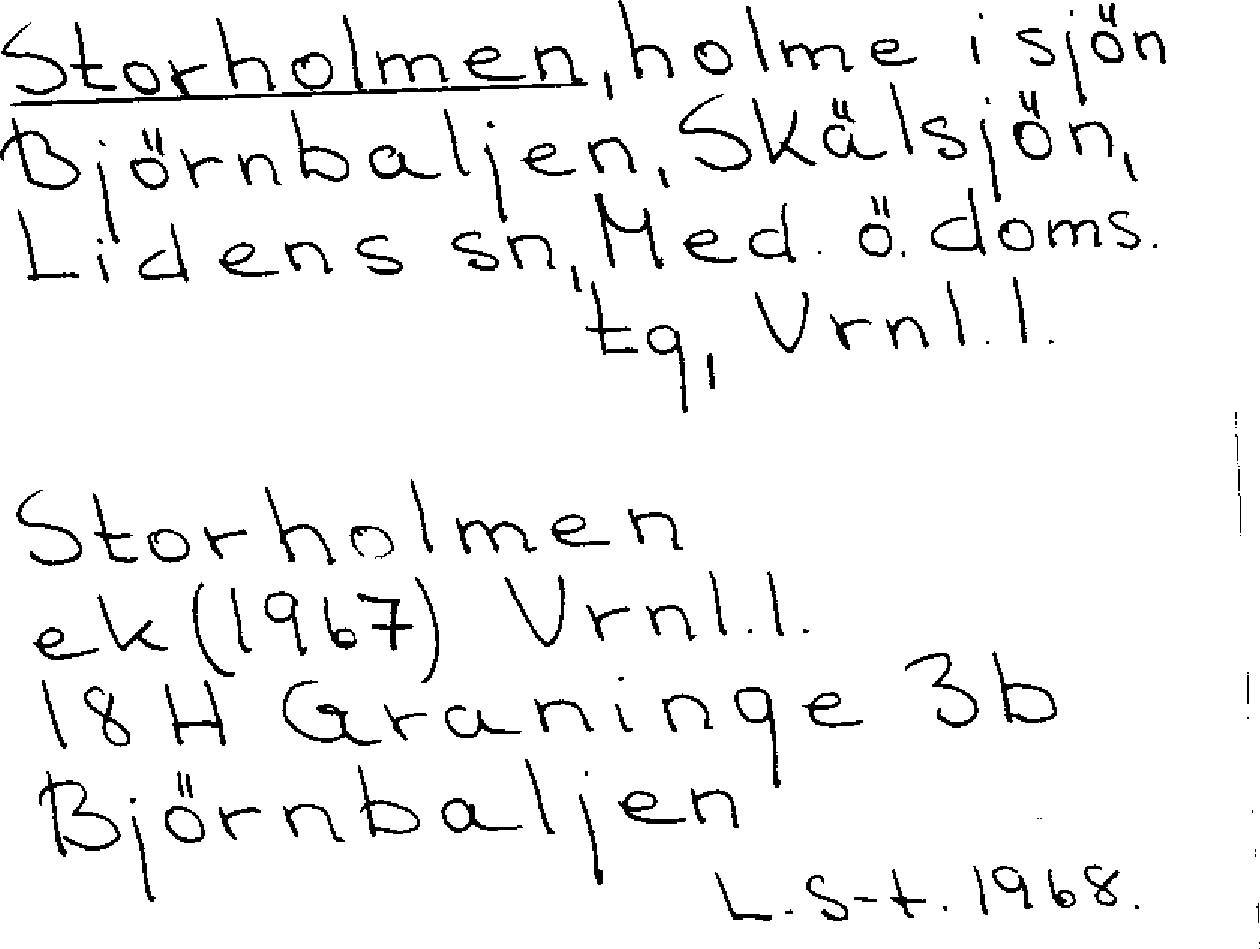 Storholmen, holme i sjön
Björnbaljen, Skälsjön,
Lidens sn, Med. ö. doms.
tg, Vrnl. l.
Storholmen
ek (1967) Vrnl. l.
18 H Graninge 3b
Björnbaljen
L. S-t. 1968.